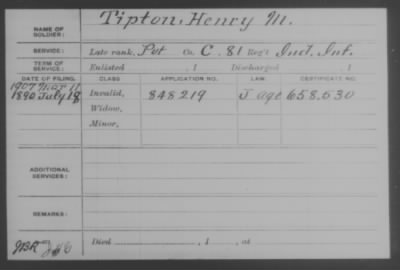 NAME OF SOLDIER: Tipton, Henry M.
SERVICE: Late rank, Pvt Co. C. 81 Reg't Ind. Inf.
TERM OF SERVICE: Enlisted , 1 Discharged , 1
DATE OF FILING. CLASS APPLICATION NO. LAW. CERTIFICATE NO.
1907 Mar 11
1890 July 18 Invalid, 848219 J age 658.530
Widow,
Minor,
ADDITIONAL SERVICES:
REMARKS:
Died , 1 , at